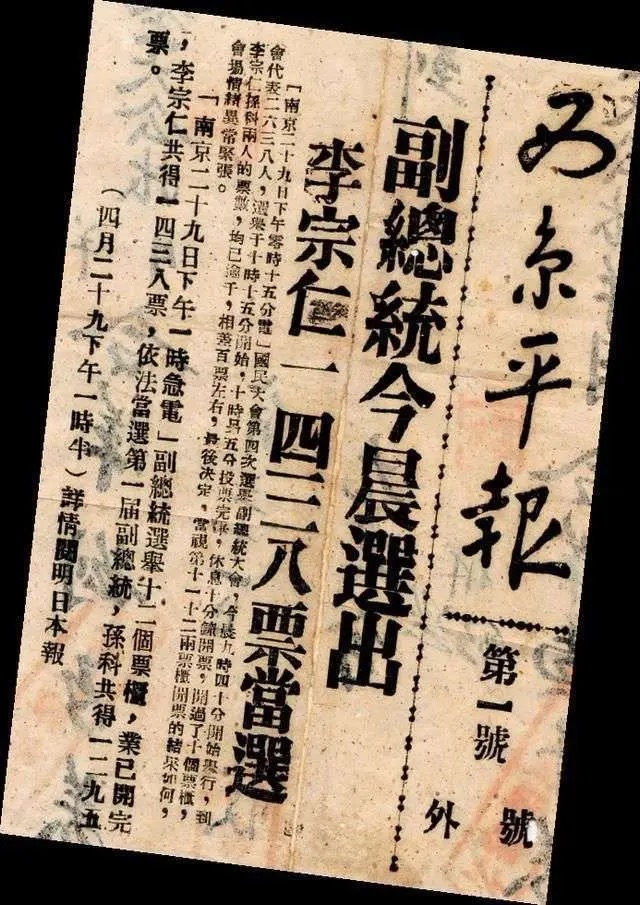 西京平報
第一號
號外
副總統今晨選出
李宗仁一四三八票當選
「南京二十九日下午零時十五分電」國民大會第四次選舉副總統大會,今晨九時四十分開始舉行,到
會代表二六三八人,選舉于十時十五分開始,十時另五分投票完畢,休息十分鐘開票,開過了十個票櫃,
李宗仁孫科兩人的票數,均已逾千,相差百票左右,最後決定,當視第十一十二兩票櫃開票的結果如何,
會場情緒異常緊張。
「南京二十九日下午一時急電」副總統選舉十二個票櫃,業已開完
,李宗仁共得一四三八票,依法當選第一屆副總統,孫科共得一二九五
票。
(四月二十九下午一時半)詳情閱明日本報